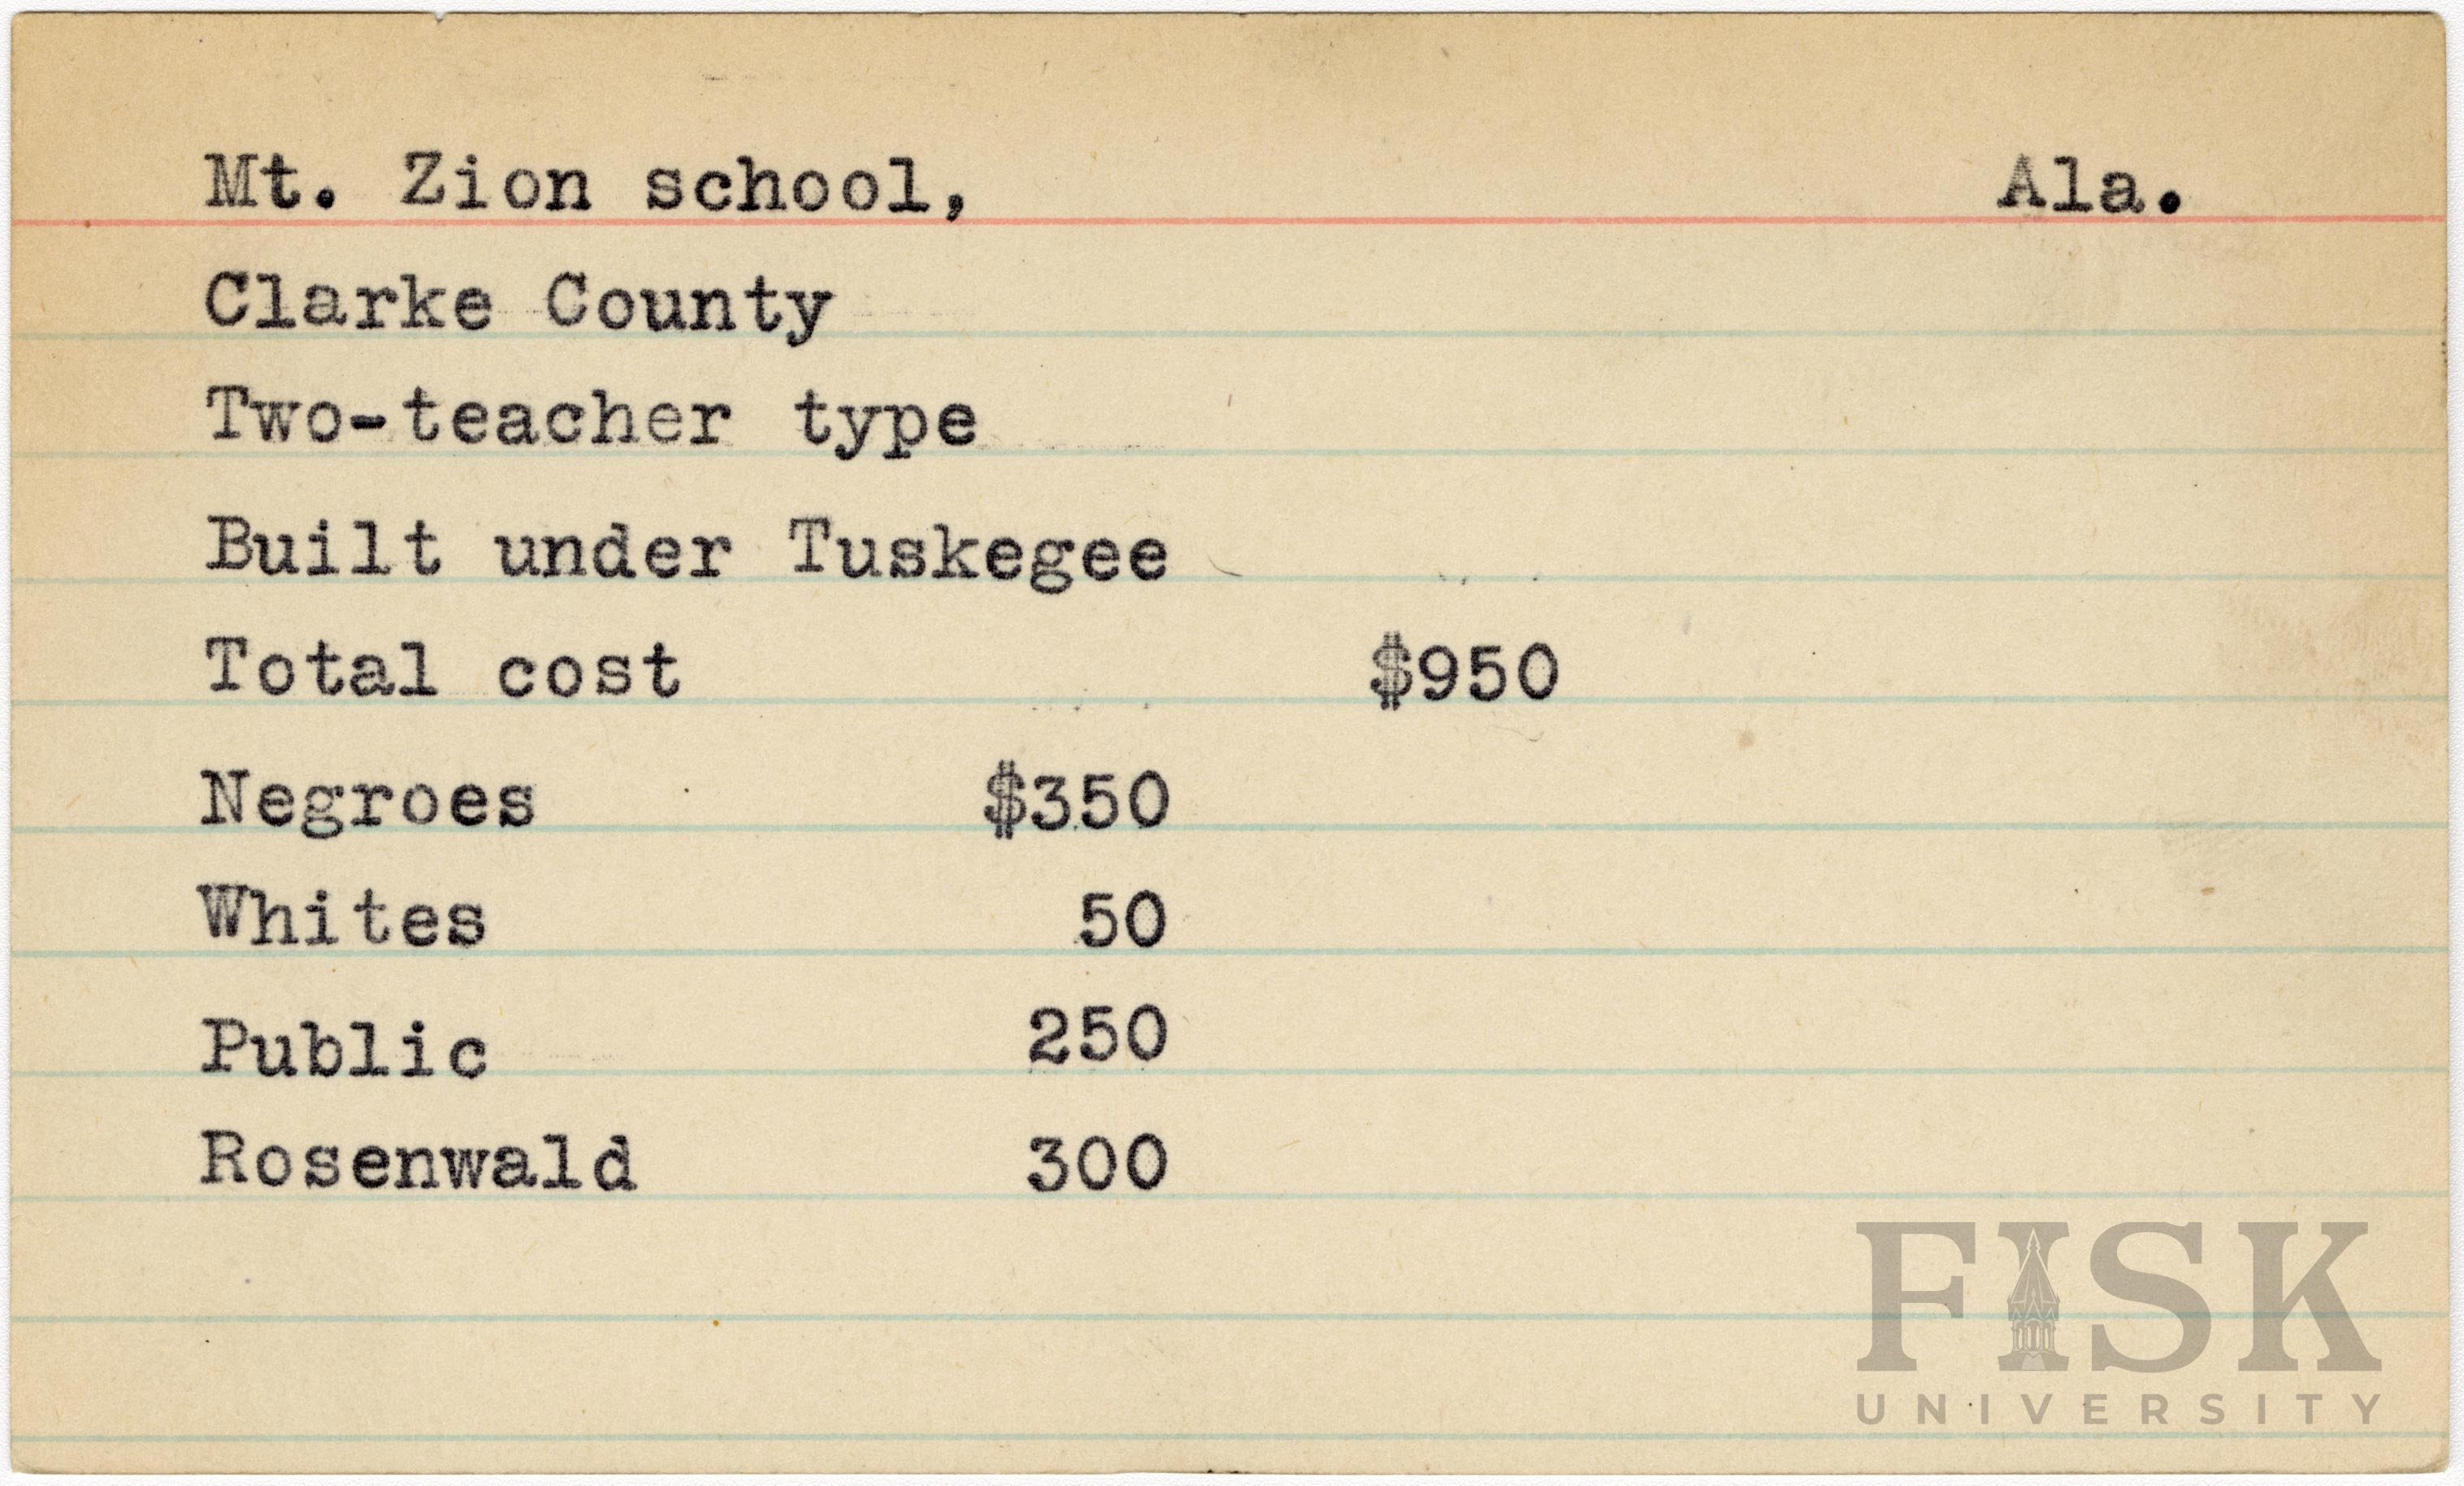 Mt. Zion school, Ala.
Clarke County
Two-teacher type
Built under Tuskegee
Total cost $950
Negroes $350
Whites 50
Public 250
Rosenwald 300
FISK
UNIVERSITY